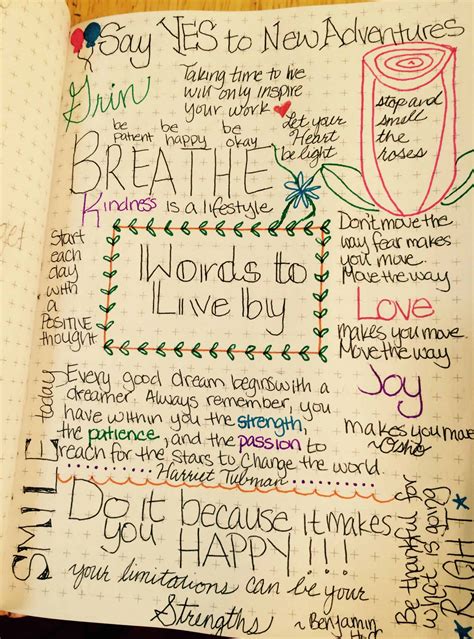 Say YES to New Adventures
Grin
Taking time to live
will only inspire
your work
be patient
be happy
be okay
BREATHE
Let your
Heart
be light
stop and
smell
the
roses
Kindness is a lifestyle
Start
each
day
with
a
POSITIVE
thought
Words to
Live by
Don't move the
way fear makes
you move.
Move the way
Love
makes you move.
Move the way
Joy
makes you move
~Osho
SMILE today
Every good dream begins with a
dreamer. Always remember, you
have within you the strength,
the patience, and the passion to
reach for the stars to change the world.
Harriet Tubman
Do it because it makes
you HAPPY!!!
your limitations can be your
Strengths
~ Benjamin
Be thankful for
what is going
RIGHT